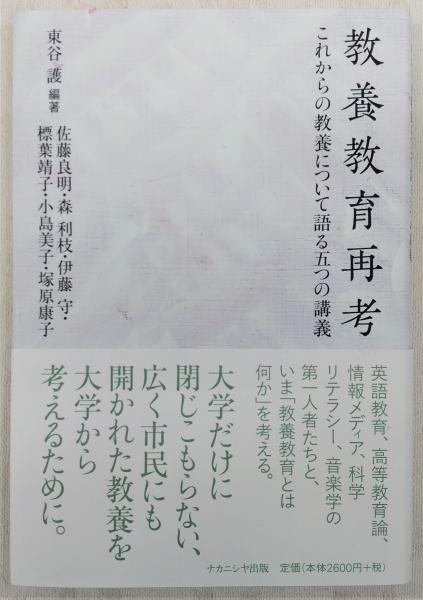 教養教育再考
これからの教養について語る五つの講義
東谷 護 編著
佐藤良明・森 利枝・伊藤 守・
標葉靖子・小島美子・塚原康子
英語教育、高等教育論、
情報メディア、科学
リテラシー、音楽学の
第一人者たちと、
いま「教養教育とは
何か」を考える。
大学だけに
閉じこもらない、
広く市民にも
開かれた教養を
大学から
考えるために。
ナカニシヤ出版 定価(本体2600円+税)